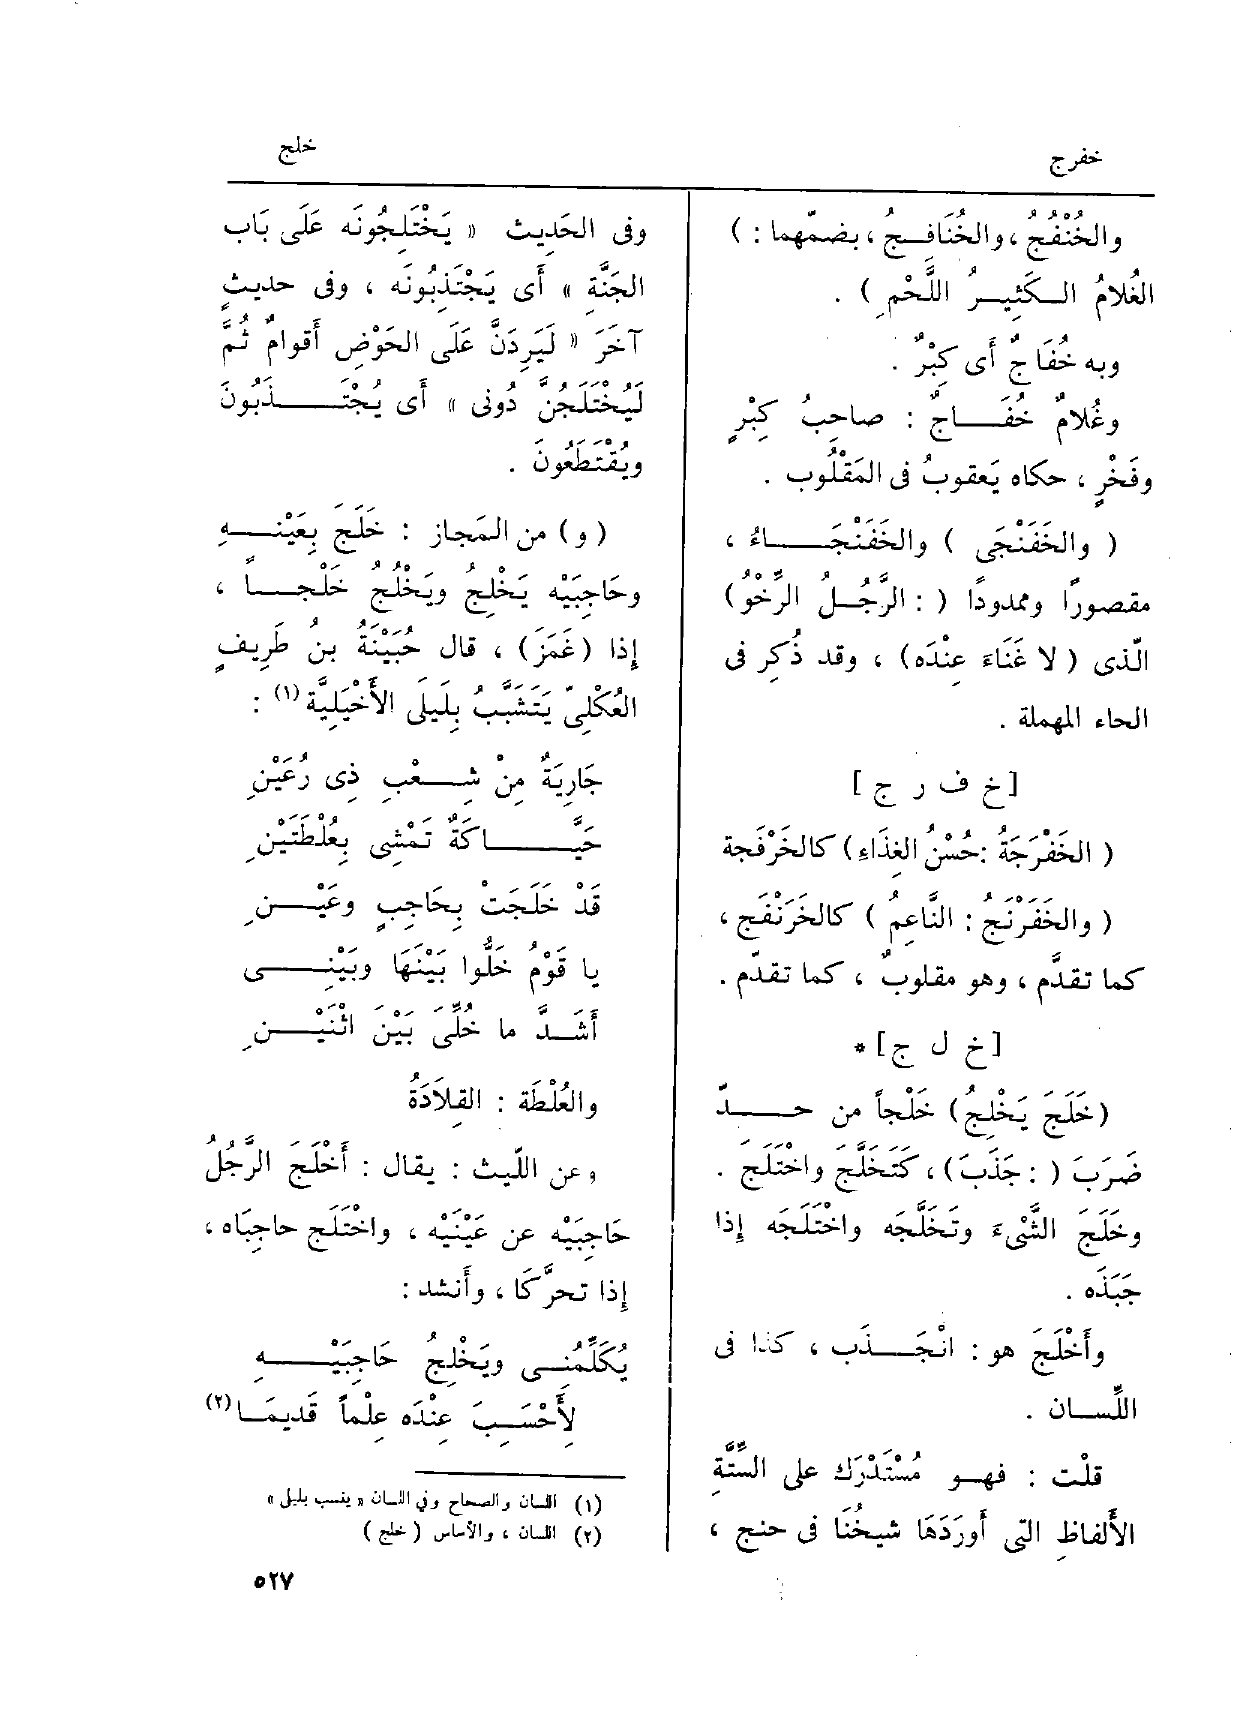 خفرج
خلج
والخُنْفُجُ ، والخُنَافِــجُ ، بضمّهما : )
الغُلامُ الــكَثِيــرُ اللَّحْمِ ) .
وبه خُفَاجٌ أَى كِبْرٌ .
وغُلامٌ خُفَــاجٌ : صاحِبُ كِبْرٍ
وفَخْرٍ ، حكاه يَعقوبُ فى المَقْلُوب .
( والخَفَنْجَى ) والخَفَنْجَــاءُ ،
مقصورًا وممدودًا ( : الرَّجُــلُ الرِّخْوُ )
الّذى ( لا غَنَاءَ عِنْدَه ) ، وقد ذُكِر فى
الحاء المهملة .
[ خ ف ر ج ]
( الخَفْرَجَةُ : حُسْنُ الغِذَاءِ ) كالخَرْفَجة
( والخَفَرْنَجُ : النَّاعِمُ ) كالخَرَنْفَج ،
كما تقدَّم ، وهو مقلوبٌ ، كما تقدّم .
[ خ ل ج ] *
( خَلَجَ يَخْلِجُ ) خَلْجاً من حــدّ
ضَرَبَ ( : جَذَبَ ) ، كَتَخَلَّجَ واخْتَلَجَ .
وخَلَجَ الشَّىْءَ وتَخَلَّجَه واخْتَلَجَه إذا
جَبَذَه .
وأَخْلَجَ هو : انْجَــذَب ، كذا فى
اللِّســان .
قلْت : فهــو مُسْتَدْرَك على السِّتَّةِ
الأَلفاظِ التى أَورَدَهَا شيخُنَا فى حنج ،
وفى الحَدِيث « يَخْتَلِجُونَه عَلَى بَاب
الجَنَّةِ » أَى يَجْتَذِبُونَه ، وفى حديثٍ
آخَرَ « لَيَرِدَنَّ عَلَى الحَوْضِ أَقوامٌ ثُمَّ
لَيُخْتَلَجُنَّ دُونى » أَى يُجْتَــذَبُونَ
ويُقْتَطَعُونَ .
( و ) من المَجاز : خَلَجَ بِعَيْنــهِ
وحَاجِبَيْه يَخْلِجُ ويَخْلُجُ خَلْجــاً ،
إذا ( غَمَزَ ) ، قال حُبَيْنَةُ بنُ طَرِيفٍ
العُكْلِىّ يَتَشَبَّبُ بِلَيلَى الأَخْيَلِيَّة (١) :
جَارِيَةٌ مِنْ شِــعْبِ ذِى رُعَيْنِ
حَيَّــاكَةٌ تَمْشِى بِعُلْطَتَيْنِ
قَدْ خَلَجَتْ بِحَاجِبٍ وعَيْــنِ
يا قَوْمُ خَلُّوا بَيْنَهَا وبَيْنِــى
أَشَــدَّ ما خُلِّىَ بَيْنَ اثْنَيْــنِ
والعُلْطَة : القِلاَدَةُ
وعن اللّيث : يقال : أَخْلَجَ الرَّجُلُ
حَاجِبَيْه عن عَيْنَيْه ، واخْتَلَج حاجِبَاه ،
إذا تحرَّكَا ، وأَنشد :
يُكَلِّمُنِــى ويَخْلِجُ حَاجِبَيْــهِ
لِأَحْسَــبَ عِنْدَه عِلْماً قَدِيمَــا (٢)
(١) اللسان والصحاح وفي اللسان « ينسب بليلى »
(٢) اللسان ، والأساس ( خلج )
٥٢٧